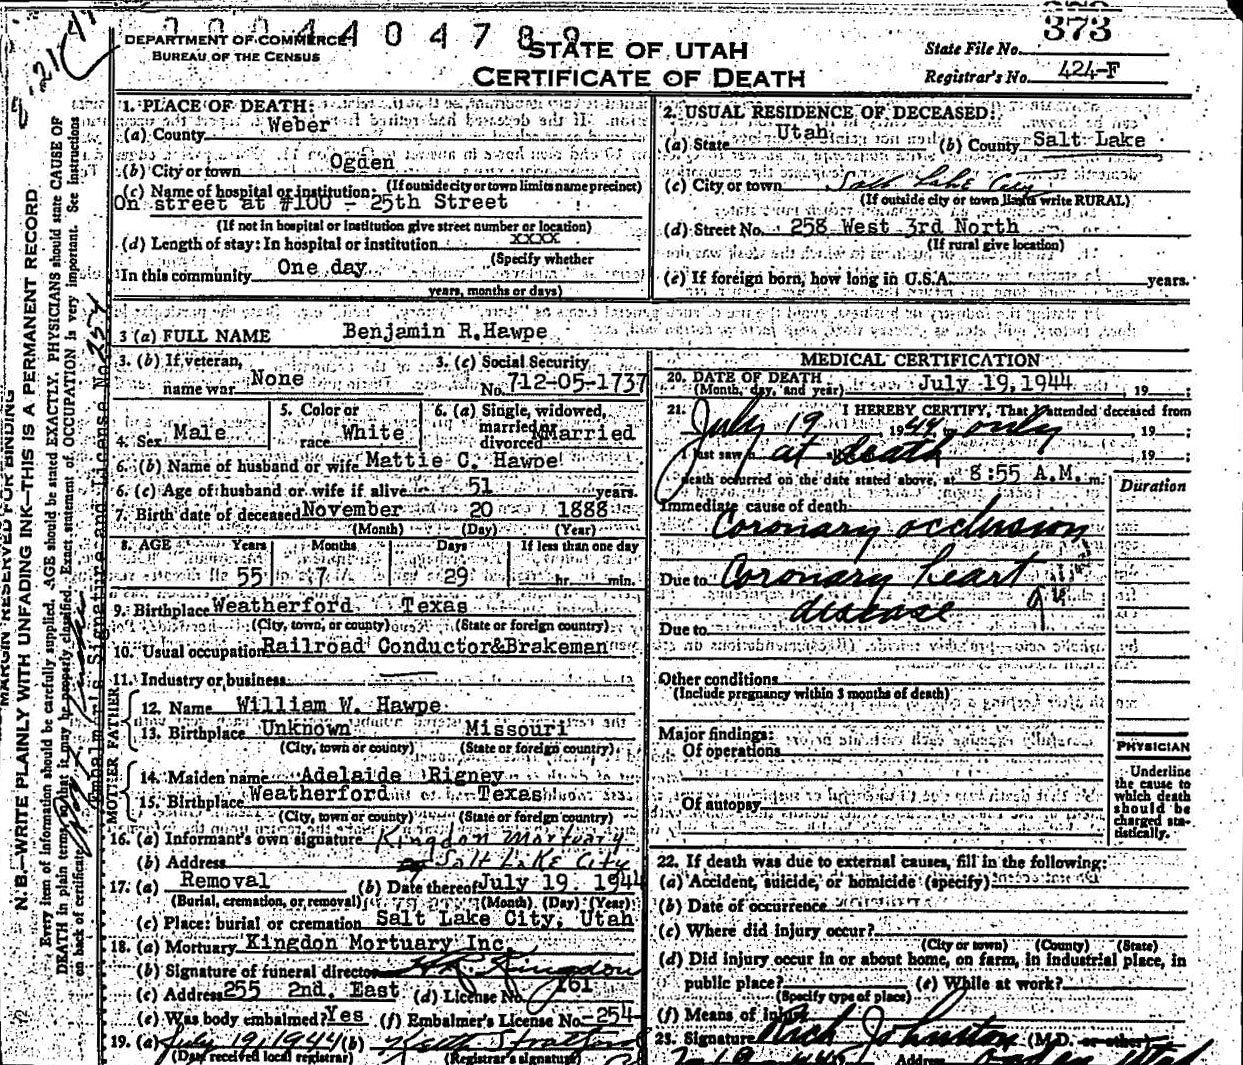 373
0 0 0 4 4 0 4 7 8 9
DEPARTMENT OF COMMERCE
BUREAU OF THE CENSUS
STATE OF UTAH
CERTIFICATE OF DEATH
State File No. 373
Registrar's No. 424-F
1. PLACE OF DEATH:
(a) County Weber
(b) City or town Ogden
(If outside city or town limits name precinct)
(c) Name of hospital or institution:
On street at #100 - 25th Street
(If not in hospital or institution give street number or location)
(d) Length of stay: In hospital or institution xxxx
(Specify whether
In this community One day
years, months or days)
2. USUAL RESIDENCE OF DECEASED:
(a) State Utah (b) County Salt Lake
(c) City or town Salt Lake City
(If outside city or town limits write RURAL)
(d) Street No. 258 West 3rd North
(If rural give location)
(e) If foreign born, how long in U.S.A. years.
3 (a) FULL NAME Benjamin R. Hawpe
3. (b) If veteran, name war None
3. (c) Social Security No. 712-05-1737
4. Sex Male
5. Color or race White
6. (a) Single, widowed, married or divorced Married
6. (b) Name of husband or wife Mattie C. Hawpe
6. (c) Age of husband or wife if alive 51 years.
7. Birth date of deceased November 20 1888
(Month) (Day) (Year)
8. AGE Years Months Days If less than one day
55 7 29 hr. min.
9. Birthplace Weatherford Texas
(City, town, or county) (State or foreign country)
10. Usual occupation Railroad Conductor&Brakeman
11. Industry or business
FATHER
12. Name William W. Hawpe
13. Birthplace Unknown Missouri
(City, town or county) (State or foreign country)
MOTHER
14. Maiden name Adelaide Rigney
15. Birthplace Weatherford Texas
(City, town or county) (State or foreign country)
16. (a) Informant's own signature Kingdon Mortuary
(b) Address Salt Lake City
17. (a) Removal (b) Date thereof July 19 1944
(Burial, cremation, or removal) (Month) (Day) (Year)
(c) Place: burial or cremation Salt Lake City, Utah
18. (a) Mortuary Kingdon Mortuary Inc.
(b) Signature of funeral director H.R. Kingdon
(c) Address 255 2nd. East (d) License No. 161
(e) Was body embalmed? Yes (f) Embalmer's License No. 254
19. (a) July 19, 1944 (b) Keith Stratford
(Date received local registrar) (Registrar's signature)
MEDICAL CERTIFICATION
20. DATE OF DEATH
(Month, day, and year) July 19, 1944, 19
21. I HEREBY CERTIFY, That I attended deceased from
July 19 1944 only, 19 ;
I last saw at death, 19 ;
death occurred on the date stated above, at 8:55 A.M. m.
Duration
Immediate cause of death
Coronary occlusion
Due to Coronary heart
disease
Due to
Other conditions
(Include pregnancy within 3 months of death)
Major findings:
Of operations
Of autopsy
PHYSICIAN
Underline
the cause to
which death
should be
charged sta-
tistically.
22. If death was due to external causes, fill in the following:
(a) Accident, suicide, or homicide (specify)
(b) Date of occurrence
(c) Where did injury occur?
(City or town) (County) (State)
(d) Did injury occur in or about home, on farm, in industrial place, in
public place? (e) While at work?
(Specify type of place)
(f) Means of injury
23. Signature Rich Johnston (M.D. or other)
Address Ogden Utah
MARGIN RESERVED FOR BINDING
N.B.—WRITE PLAINLY WITH UNFADING INK—THIS IS A PERMANENT RECORD
Every item of information should be carefully supplied. AGE should be stated EXACTLY. PHYSICIANS should state CAUSE OF
DEATH in plain terms, that it may be properly classified. Exact statement of OCCUPATION is very important. See instructions
on back of certificate.
Embalmer's Signature and License No. 254